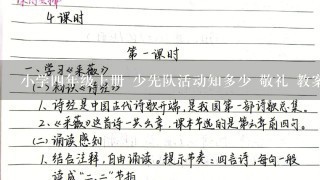 4课时
第一课时
一、学习《采薇》
小学四年级上册 少先队活动知多少 敬礼 教案
(一)初识《诗经》
1、诗经是中国古代诗歌开端,是我国第一部诗歌总集。
2、《采薇》这首诗一共六章,课本节选的是第六章前四句。
(二)诵读感知
1、结合注释,自由诵读。提示节奏:四言诗,每句一般
读成“二、二”节拍